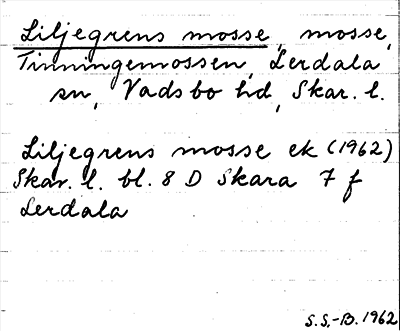 Liljegrens mosse, mosse,
Tinningemossen, Lerdala
sn, Vadsbo hd, Skar. l.
Liljegrens mosse ek (1962)
Skar. l. bl. 8 D Skara 7 f
Lerdala
S.S.-B. 1962